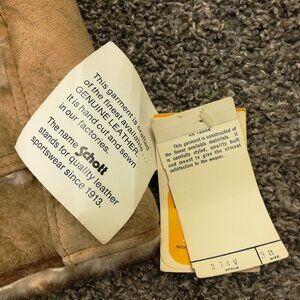 This garment is crafted
of the finest available...
GENUINE LEATHER.
It is hand cut and sewn
in our factories.
The name Schott
stands for quality leather
sportswear since 1913.
This garment is constructed of
the finest available materials. It
is carefully styled, quality built
and meant to give the utmost
satisfaction to the wearer.
274V
38
STYLE
SIZE